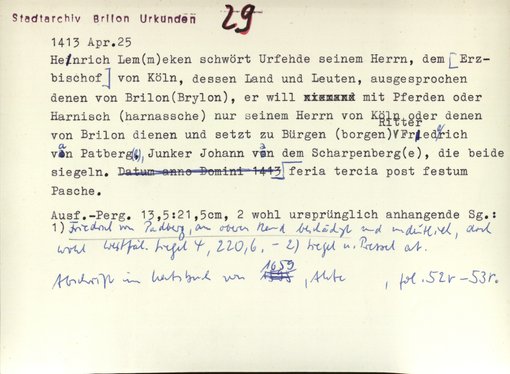 Stadtarchiv Brilon Urkunden
29
1413 Apr.25
Heinrich Lem(m)eken schwört Urfehde seinem Herrn, dem [Erz-
bischof] von Köln, dessen Land und Leuten, ausgesprochen
denen von Brilon(Brylon), er will mit Pferden oder
Harnisch (harnassche) nur seinem Herrn von Köln oder denen
von Brilon dienen und setzt zu Bürgen (borgen) Ritter Friedrich
van Patberg, Junker Johann van dem Scharpenberg(e), die beide
siegeln. Datum anno Domini 1413] feria tercia post festum
Pasche.
Ausf.-Perg. 13,5:21,5cm, 2 wohl ursprünglich anhangende Sg.:
1) Friedrich von Padberg, am obern Rand beschädigt und undeutlich, doch
wohl Westfäl. Siegel 4, 220,6, - 2) Siegel u. Pressel ab.
Abschrift im von 1659, Akte , fol. 52r - 53r.